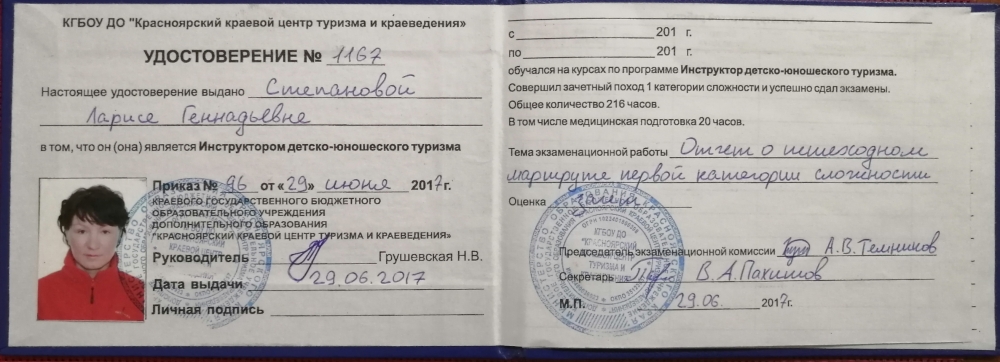 КГБОУ ДО "Красноярский краевой центр туризма и краеведения»
УДОСТОВЕРЕНИЕ № 1167
Настоящее удостоверение выдано Степановой
Ларисе Геннадьевне
в том, что он (она) является Инструктором детско-юношеского туризма
Приказ № 96 от «29» июня 2017г.
КРАЕВОГО ГОСУДАРСТВЕННОГО БЮДЖЕТНОГО
ОБРАЗОВАТЕЛЬНОГО УЧРЕЖДЕНИЯ
ДОПОЛНИТЕЛЬНОГО ОБРАЗОВАНИЯ
"КРАСНОЯРСКИЙ КРАЕВОЙ ЦЕНТР ТУРИЗМА И КРАЕВЕДЕНИЯ»
Руководитель Грушевская Н.В.
Дата выдачи 29.06.2017
Личная подпись
с 201 г.
по 201 г.
обучался на курсах по программе Инструктор детско-юношеского туризма.
Совершил зачетный поход 1 категории сложности и успешно сдал экзамены.
Общее количество 216 часов.
В том числе медицинская подготовка 20 часов.
Тема экзаменационной работы Отчет о пешеходном
маршруте первой категории сложности
Оценка Зачет
Председатель экзаменационной комиссии А.В.
Секретарь В.А.
М.П. 29.06. 2017г.